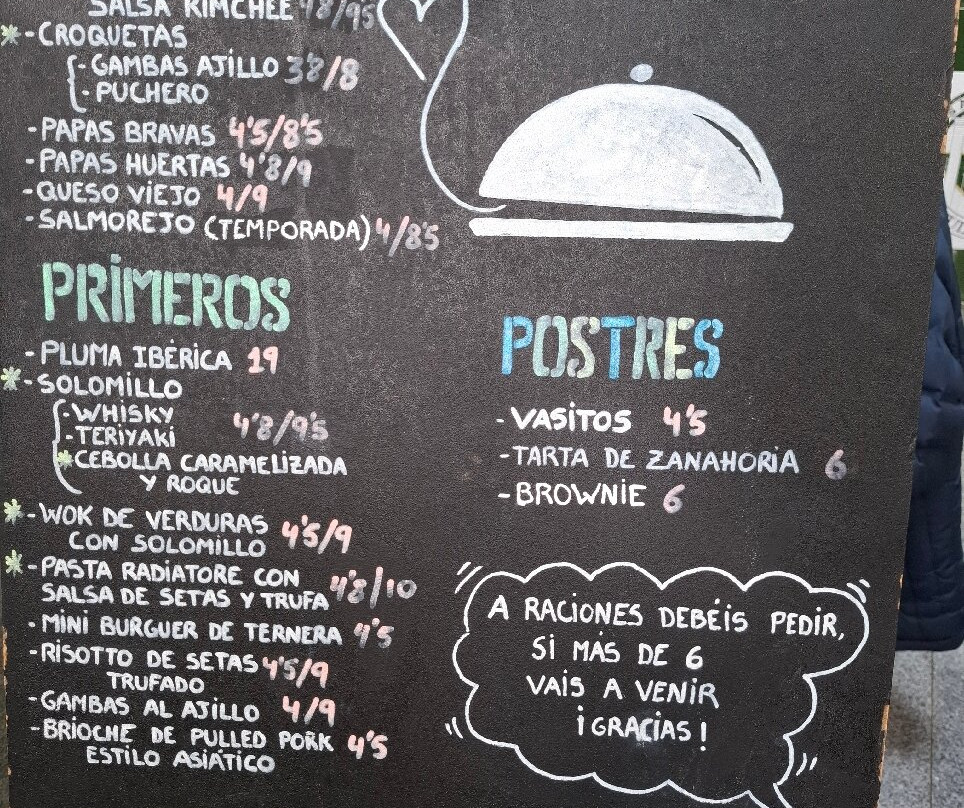 SALSA KIMCHEE 4'8/9'5
* - CROQUETAS
- GAMBAS AJILLO 3'8/8
- PUCHERO
- PAPAS BRAVAS 4'5/8'5
- PAPAS HUERTAS 4'8/9
- QUESO VIEJO 4/9
- SALMOREJO (TEMPORADA) 4/8'5
PRIMEROS
- PLUMA IBÉRICA 19
* - SOLOMILLO
- WHISKY
4'8/9'5
- TERIYAKI
* CEBOLLA CARAMELIZADA
Y ROQUE
* - WOK DE VERDURAS 4'5/9
CON SOLOMILLO
* - PASTA RADIATORE CON
SALSA DE SETAS Y TRUFA 4'8/10
- MINI BURGUER DE TERNERA 4'5
- RISOTTO DE SETAS 4'5/9
TRUFADO
- GAMBAS AL AJILLO 4/9
- BRIOCHE DE PULLED PORK 4'5
ESTILO ASIÁTICO
POSTRES
- VASITOS 4'5
- TARTA DE ZANAHORIA 6
- BROWNIE 6
A RACIONES DEBÉIS PEDIR,
SI MÁS DE 6
VAIS A VENIR
¡GRACIAS!